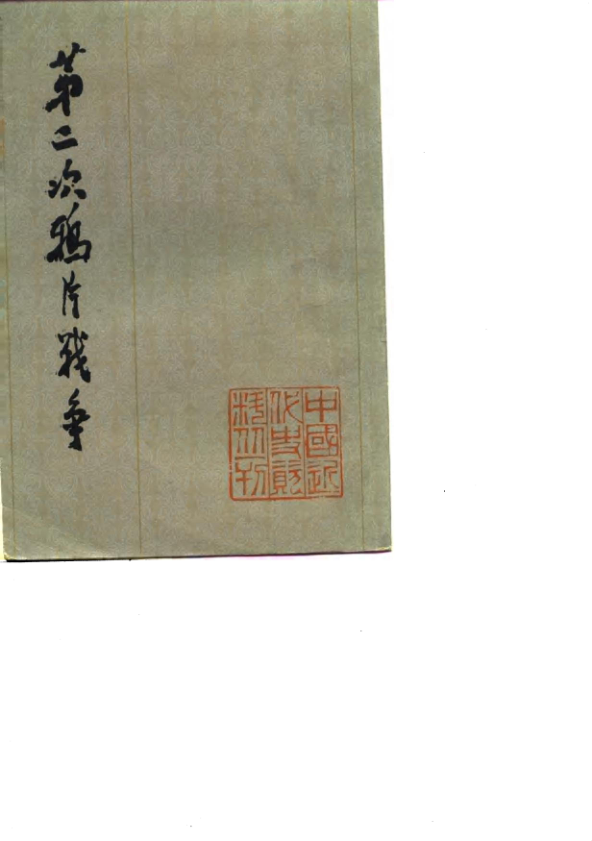 第二次鴉片戰爭
中國近
代史資
料叢刊